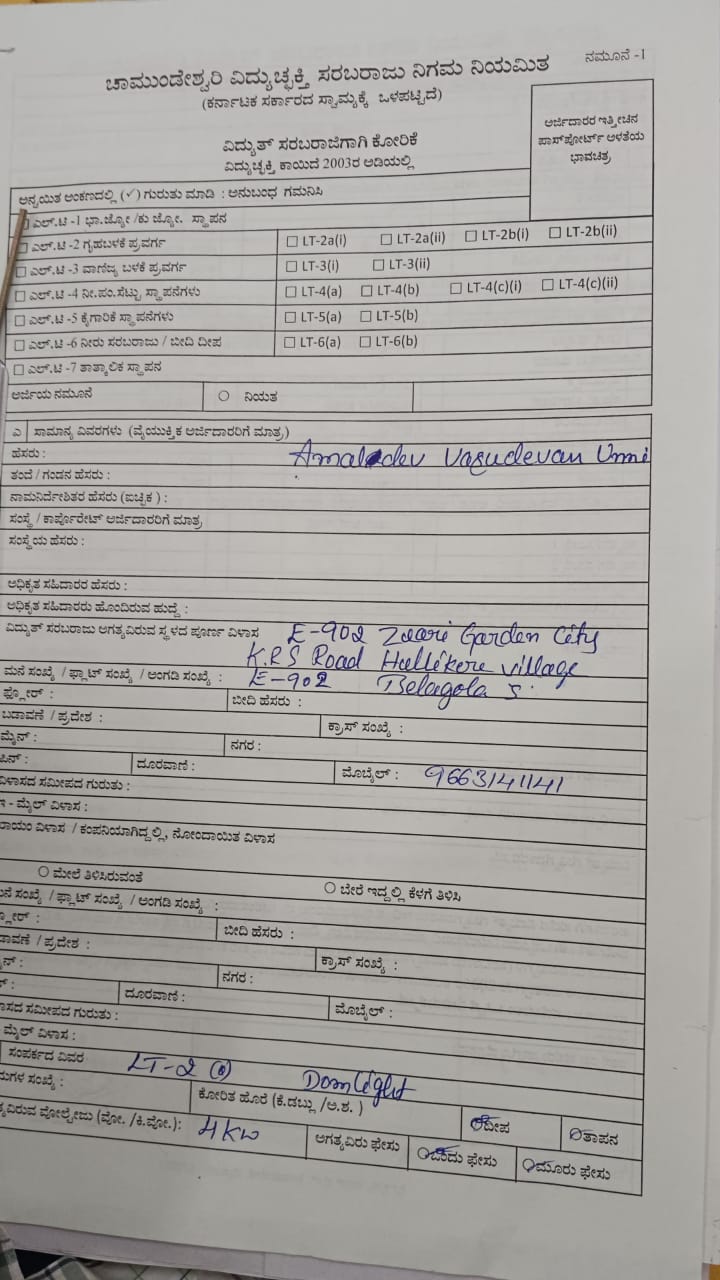 ನಮೂನೆ -1
ಚಾಮುಂಡೇಶ್ವರಿ ವಿದ್ಯುಚ್ಛಕ್ತಿ ಸರಬರಾಜು ನಿಗಮ ನಿಯಮಿತ
(ಕರ್ನಾಟಕ ಸರ್ಕಾರದ ಸ್ವಾಮ್ಯಕ್ಕೆ ಒಳಪಟ್ಟಿದೆ)
ಅರ್ಜಿದಾರರ ಇತ್ತೀಚಿನ
ಪಾಸ್‌ಪೋರ್ಟ್ ಅಳತೆಯ
ಭಾವಚಿತ್ರ
ವಿದ್ಯುತ್ ಸರಬರಾಜಿಗಾಗಿ ಕೋರಿಕೆ
ವಿದ್ಯುಚ್ಛಕ್ತಿ ಕಾಯಿದೆ 2003ರ ಅಡಿಯಲ್ಲಿ
ಅನ್ವಯಿತ ಅಂಕಣದಲ್ಲಿ (✓) ಗುರುತು ಮಾಡಿ : ಅನುಬಂಧ ಗಮನಿಸಿ
ಎಲ್.ಟಿ -1 ಭಾ.ಜ್ಯೋ /ಕು ಜ್ಯೋ. ಸ್ಥಾಪನ
ಎಲ್.ಟಿ -2 ಗೃಹಬಳಕೆ ಪ್ರವರ್ಗ ☐ LT-2a(i) ☐ LT-2a(ii) ☐ LT-2b(i) ☐ LT-2b(ii)
☐ ಎಲ್.ಟಿ -3 ವಾಣಿಜ್ಯ ಬಳಕೆ ಪ್ರವರ್ಗ ☐ LT-3(i) ☐ LT-3(ii)
☐ ಎಲ್.ಟಿ -4 ನೀ.ಪಂ.ಸೆಟ್ಟು ಸ್ಥಾಪನೆಗಳು ☐ LT-4(a) ☐ LT-4(b) ☐ LT-4(c)(i) ☐ LT-4(c)(ii)
☐ ಎಲ್.ಟಿ -5 ಕೈಗಾರಿಕೆ ಸ್ಥಾಪನೆಗಳು ☐ LT-5(a) ☐ LT-5(b)
☐ ಎಲ್.ಟಿ -6 ನೀರು ಸರಬರಾಜು / ಬೀದಿ ದೀಪ ☐ LT-6(a) ☐ LT-6(b)
☐ ಎಲ್.ಟಿ -7 ತಾತ್ಕಾಲಿಕ ಸ್ಥಾಪನ
ಅರ್ಜಿಯ ನಮೂನೆ ○ ನಿಯತ
ಎ ಸಾಮಾನ್ಯ ವಿವರಗಳು (ವೈಯುಕ್ತಿಕ ಅರ್ಜಿದಾರರಿಗೆ ಮಾತ್ರ)
ಹೆಸರು : Amaldev Vasudevan Unni
ತಂದೆ / ಗಂಡನ ಹೆಸರು :
ನಾಮನಿರ್ದೇಶಿತರ ಹೆಸರು (ಐಚ್ಛಿಕ ) :
ಸಂಸ್ಥೆ / ಕಾರ್ಪೊರೇಟ್ ಅರ್ಜಿದಾರರಿಗೆ ಮಾತ್ರ
ಸಂಸ್ಥೆಯ ಹೆಸರು :
ಅಧಿಕೃತ ಸಹಿದಾರರ ಹೆಸರು :
ಅಧಿಕೃತ ಸಹಿದಾರರು ಹೊಂದಿರುವ ಹುದ್ದೆ :
ವಿದ್ಯುತ್ ಸರಬರಾಜು ಅಗತ್ಯವಿರುವ ಸ್ಥಳದ ಪೂರ್ಣ ವಿಳಾಸ E-902 Zuari Garden City
K.R.S Road Hullikere village
ಮನೆ ಸಂಖ್ಯೆ / ಫ್ಲಾಟ್ ಸಂಖ್ಯೆ / ಅಂಗಡಿ ಸಂಖ್ಯೆ : E-902 Belagola S.
ಫ್ಲೋರ್ : ಬೀದಿ ಹೆಸರು :
ಬಡಾವಣೆ / ಪ್ರದೇಶ : ಕ್ರಾಸ್ ಸಂಖ್ಯೆ :
ಮೈನ್ : ನಗರ :
ಪಿನ್ : ದೂರವಾಣಿ : ಮೊಬೈಲ್ : 9663141141
ವಿಳಾಸದ ಸಮೀಪದ ಗುರುತು :
ಇ - ಮೈಲ್ ವಿಳಾಸ :
ರಾಯಂ ವಿಳಾಸ / ಕಂಪನಿಯಾಗಿದ್ದಲ್ಲಿ, ನೋಂದಾಯಿತ ವಿಳಾಸ
○ ಮೇಲೆ ತಿಳಿಸಿರುವಂತೆ ○ ಬೇರೆ ಇದ್ದಲ್ಲಿ ಕೆಳಗೆ ತಿಳಿಸಿ
ನೆ ಸಂಖ್ಯೆ / ಫ್ಲಾಟ್ ಸಂಖ್ಯೆ / ಅಂಗಡಿ ಸಂಖ್ಯೆ :
್ಲೋರ್ : ಬೀದಿ ಹೆಸರು :
ಡಾವಣೆ / ಪ್ರದೇಶ : ಕ್ರಾಸ್ ಸಂಖ್ಯೆ :
ನ್ : ನಗರ :
್ : ದೂರವಾಣಿ : ಮೊಬೈಲ್ :
ಾಸದ ಸಮೀಪದ ಗುರುತು :
ಮೈಲ್ ವಿಳಾಸ :
ಸಂಪರ್ಕದ ವಿವರ LT-2 Domlight
ುಗಳ ಸಂಖ್ಯೆ : ಕೋರಿತ ಹೊರೆ (ಕೆ.ಡಬ್ಲ್ಯು /ಅ.ಶ. ) ○ ದೀಪ ○ ತಾಪನ
್ಯವಿರುವ ವೋಲ್ಟೇಜು (ವೋ. /ಕಿ.ವೋ.): 4 KW ಅಗತ್ಯವಿರು ಫೇಸು ○ ಒಂದು ಫೇಸು ○ ಮೂರು ಫೇಸು